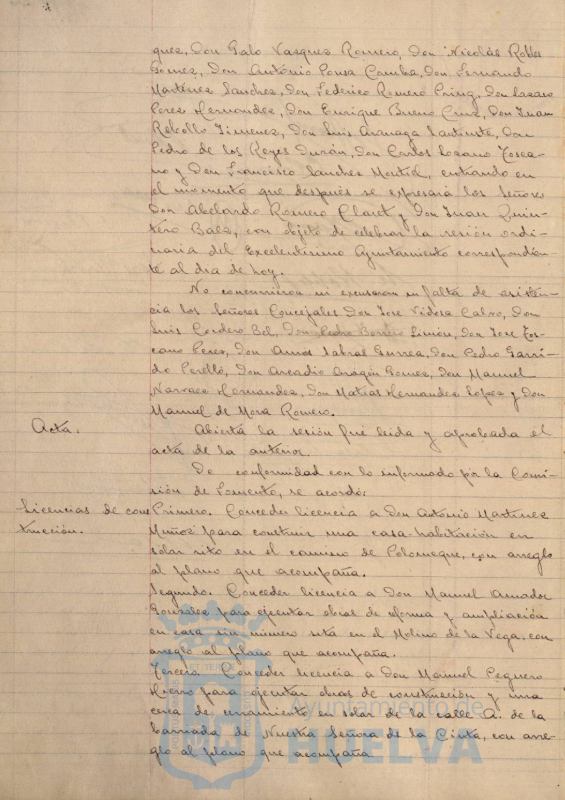 quez, Don Galo Vazquez Romero, Don Nicolás Robles
Gomez, Don António Pousa Camba, Don Fernando
Martínez Sanchez, Don Federico Romero Pring, Don Lazaro
Perez Hernandez, Don Enrique Bueno Cruz, Don Juan
Rebollo Jimenez, Don Luis Aranaga Santiuste, Don
Pedro de los Reyes Durán, Don Carlos Lozano Tosca-
no y Don Francisco Sanchez Montiel, entrando en
el momento que después se expresará los Señores
Don Abelardo Romero Claret y Don Juan Quin-
tero Baez, con objeto de celebrar la sesión ordi-
naria del Excelentísimo Ayuntamiento correspondien-
te al día de hoy.
No concurrieron ni excusaron su falta de asisten-
cia los Señores Concejales Don José Vidosa Calvo, Don
Luis Cordero Bel, Don Pedro Borrero Limón, Don José Tos-
cano Perez, Don Amos Sabrás Gurrea, Don Pedro Garri-
do Perelló, Don Arcadio Aragón Gomez, Don Manuel
Narvaez Hernandez, Don Matías Hernandez Lopez y Don
Manuel de Mora Romero.
Acta.
Abierta la sesión fué leida y aprobada el
acta de la anterior.
De conformidad con lo informado por la Comi-
sión de Fomento, se acordó:
Licencias de cons
trucción.
Primero. Conceder licencia a Don Antonio Martinez
Muñoz para construir una casa-habitación en
solar sito en el camino de Palomeque, con arreglo
al plano que acompaña.
Segundo. Conceder licencia a Don Manuel Amador
Gonzalez para ejecutar obras de reforma y ampliación
en casa sin número sita en el Molino de la Vega, con
arreglo al plano que acompaña.
Tercero. Conceder licencia a Don Manuel Peguero
Hierro para ejecutar obras de construcción y una
cerca de cerramiento en solar de la calle A. de la
barriada de Nuestra Señora de la Cinta, con arre-
glo al plano que acompaña
Ayuntamiento de
HUELVA